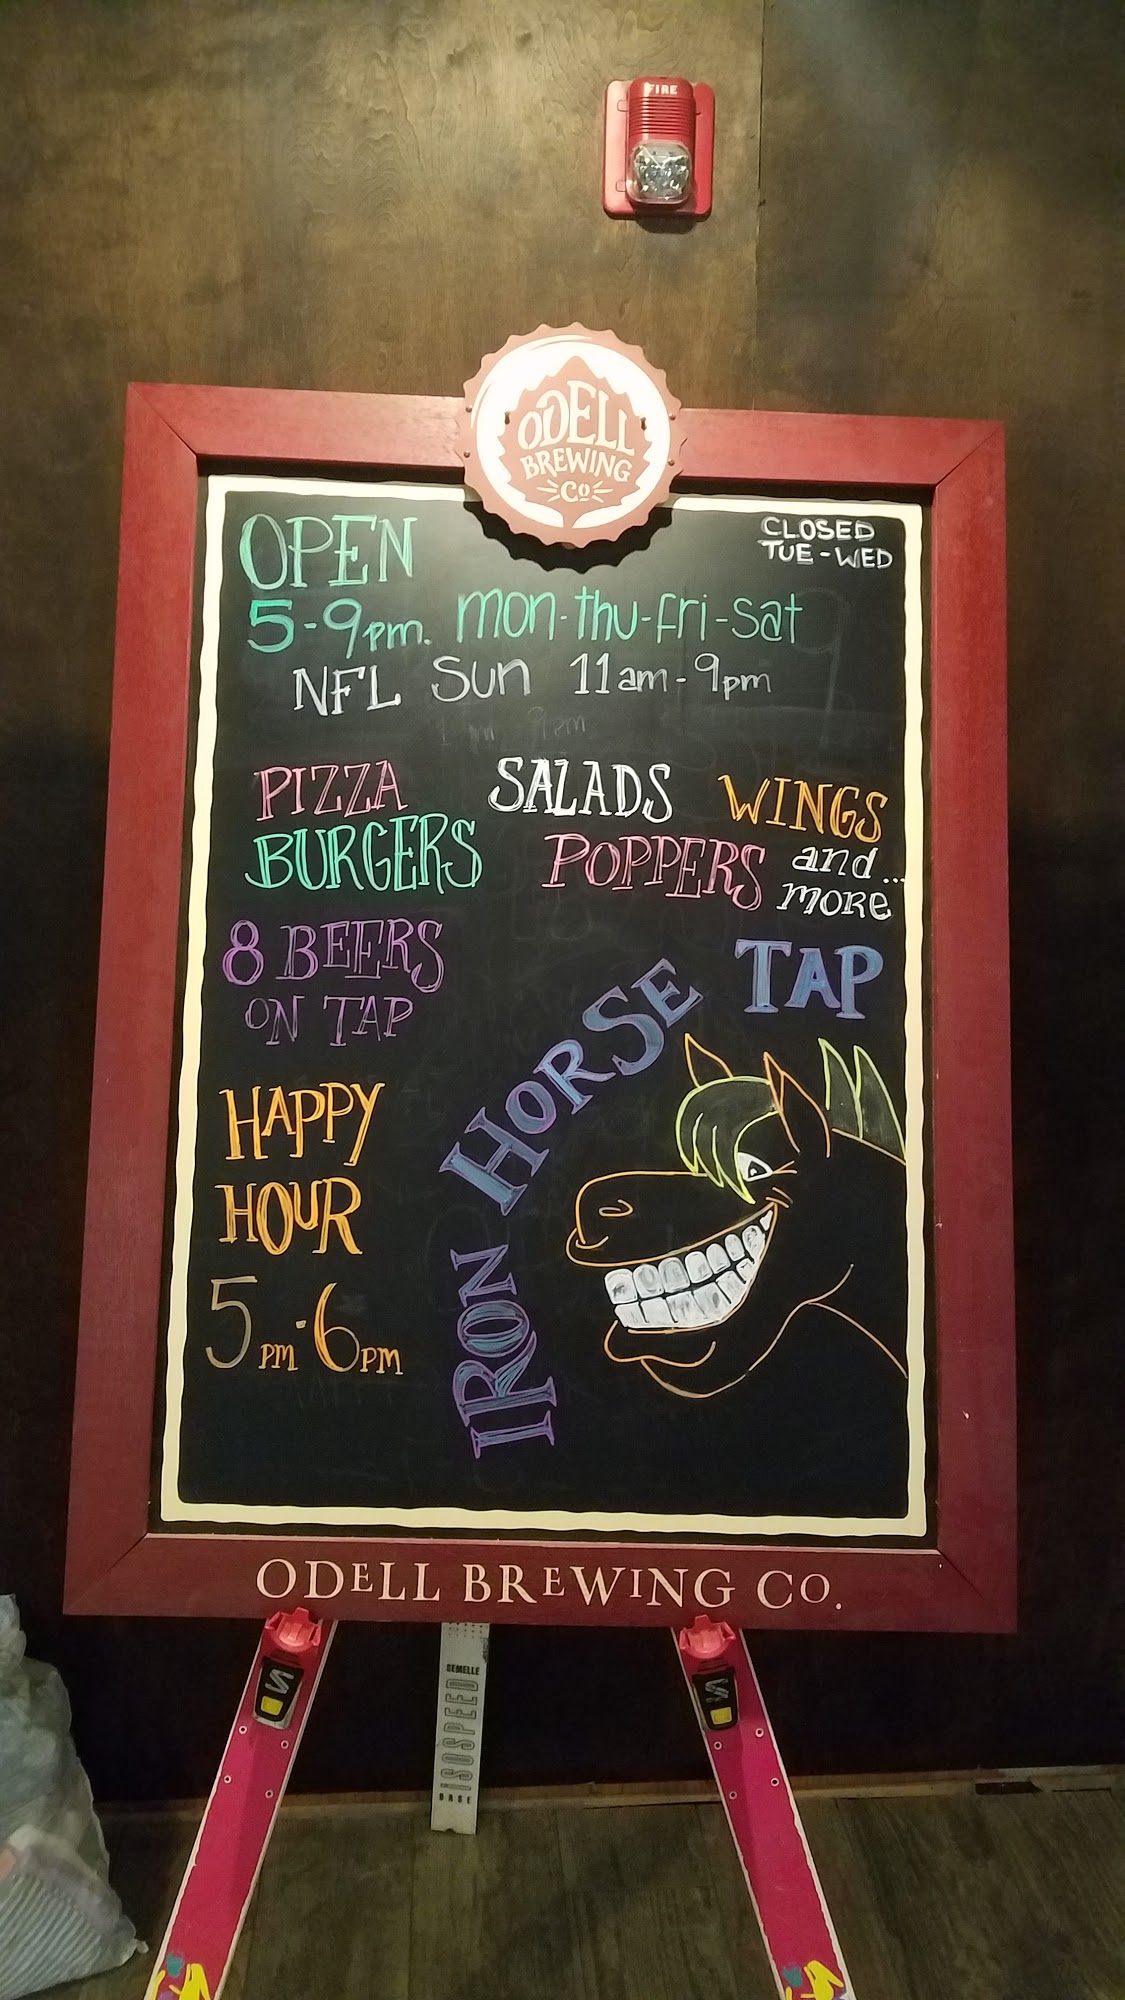 FIRE
ODELL
BREWING
CO
OPEN
CLOSED
TUE-WED
5-9pm. mon-thu-fri-sat
NFL Sun 11am-9pm
PIZZA SALADS WINGS
BURGERS POPPERS and...
more
8 BEERS
ON TAP
IRON HORSE TAP
HAPPY
HOUR
5pm-6pm
ODELL BREWING CO.
SEMELLE
iSOSPEED
BASE